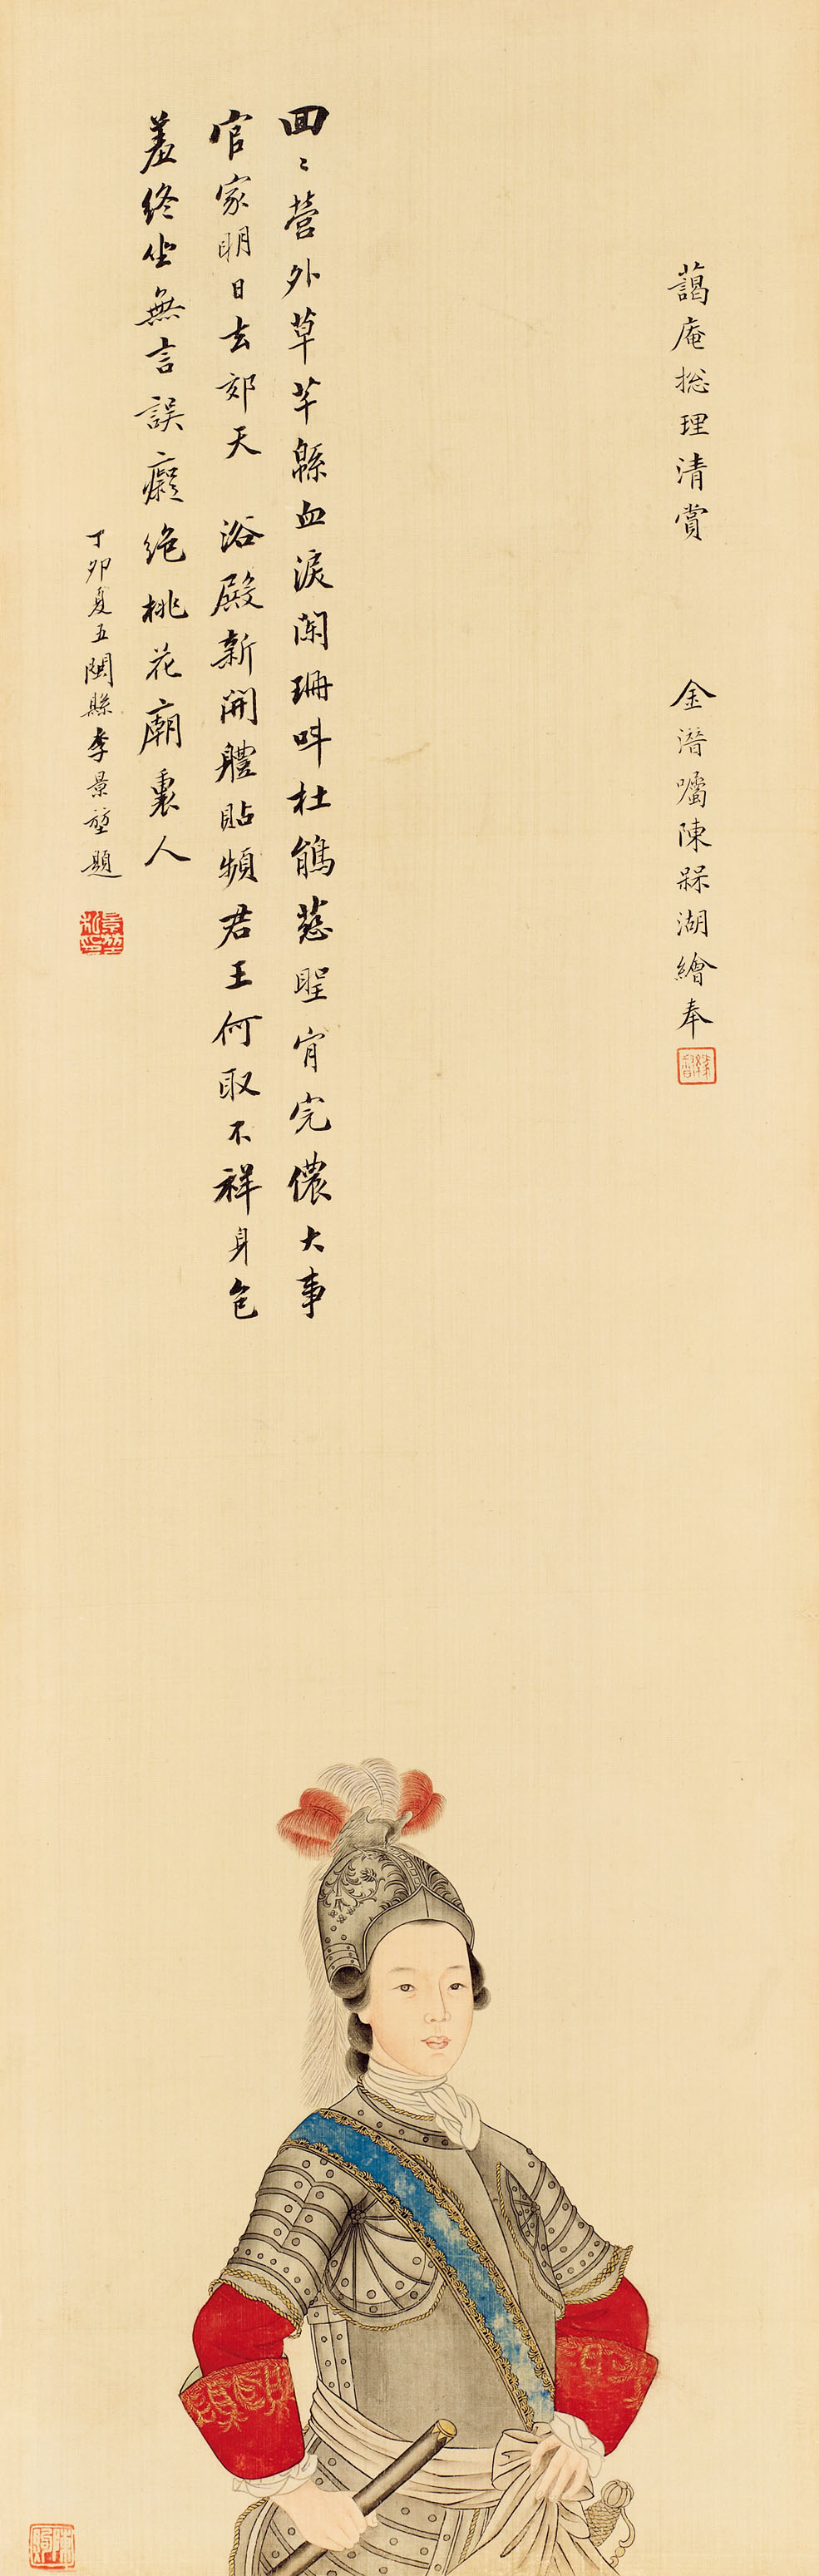 藹庵総理清賞 金潛囑陳㷛湖繪奉
回〻營外草芊緜血淚闌珊呌杜鵑慈聖宵完儂大事
官家明日去郊天 浴殿新開體貼頻君王何取不祥身包
羞終坐無言誤癡絶桃花廟裏人
丁卯夏五閩縣李景堃題